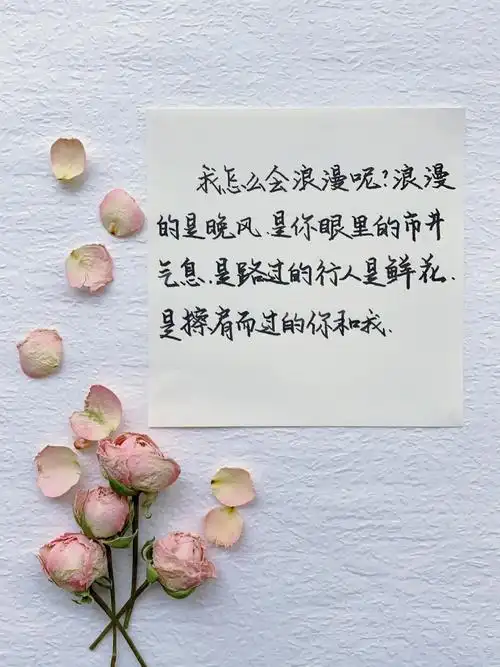 我怎么会浪漫呢?浪漫
的是晚风、是你眼里的市井
气息、是路过的行人是鲜花、
是擦肩而过的你和我、